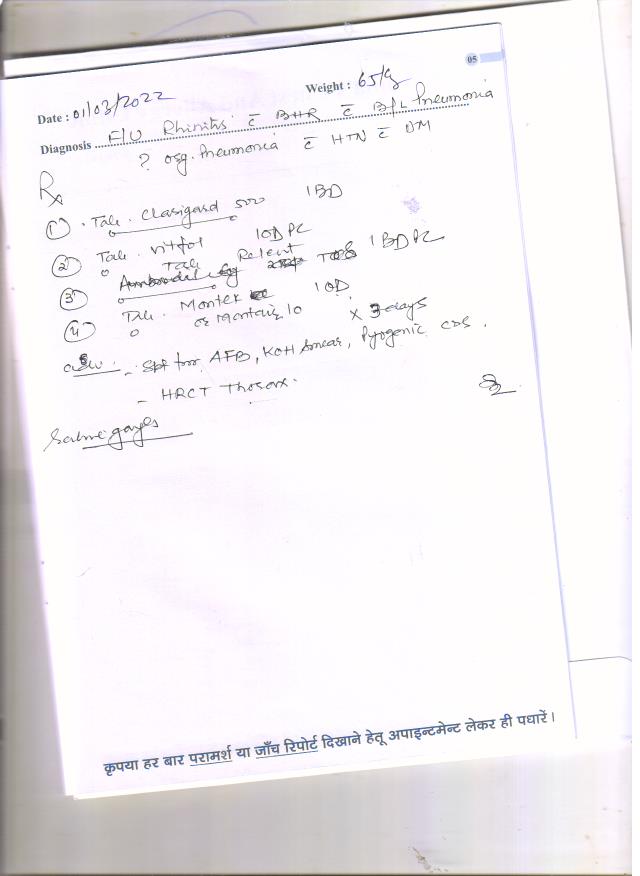 05
Date : 01/03/2022 Weight : 65kg
Diagnosis F/U Rhinitis c̄ BHR c̄ B/L Pneumonia
? org. Pneumonia c̄ HTN c̄ DM
Rx
① Tab. Clasigard 500 1BD
② Tab. Vitfol 1OD PC
③ Tab Relent 1BD PC
④ Tab. Montek 10D
or Montair 10 x 3 days
- Spt for AFB, KOH smear, Pyogenic c/s.
- HRCT Thorax.
Saline gargles
कृपया हर बार परामर्श या जाँच रिपोर्ट दिखाने हेतू अपाइन्टमेन्ट लेकर ही पधारें।